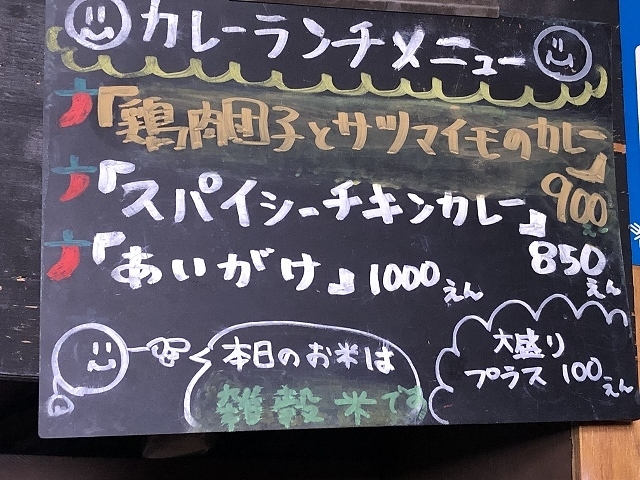 カレーランチメニュー
『鶏肉団子とサツマイモのカレー』
900
『スパイシーチキンカレー』
850えん
『あいがけ』1000えん
本日のお米は
雑穀米です
大盛り
プラス100えん